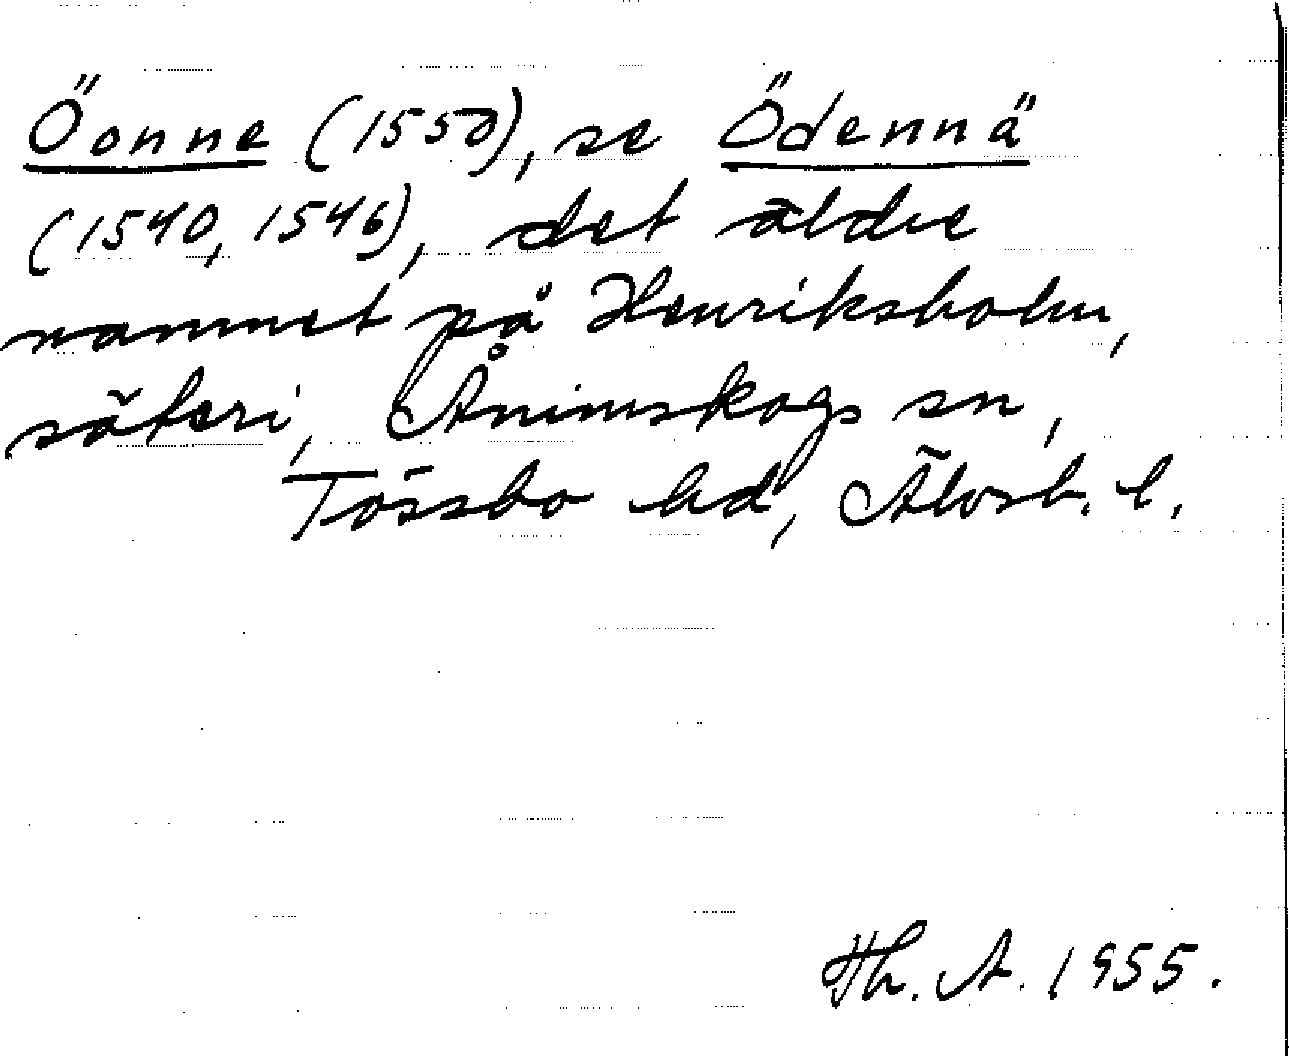 Öonne (1550), se Ödennä
(1540, 1546), det äldre
namnet på Henriksholm,
säteri, Ånimskogs sn,
Tössbo hd, Älvsb. l.
Th. A. 1955.